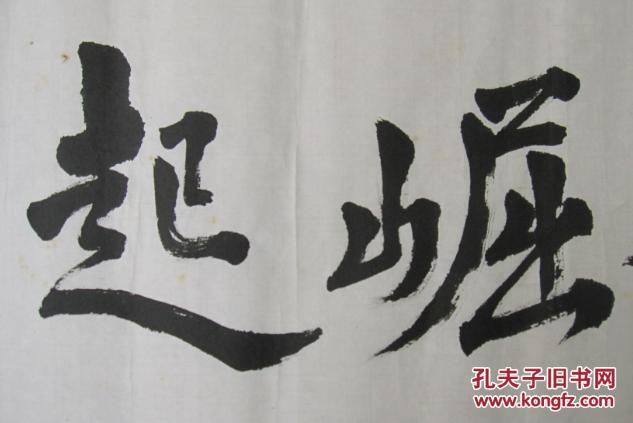 崛起
孔夫子旧书网
www.kongfz.com